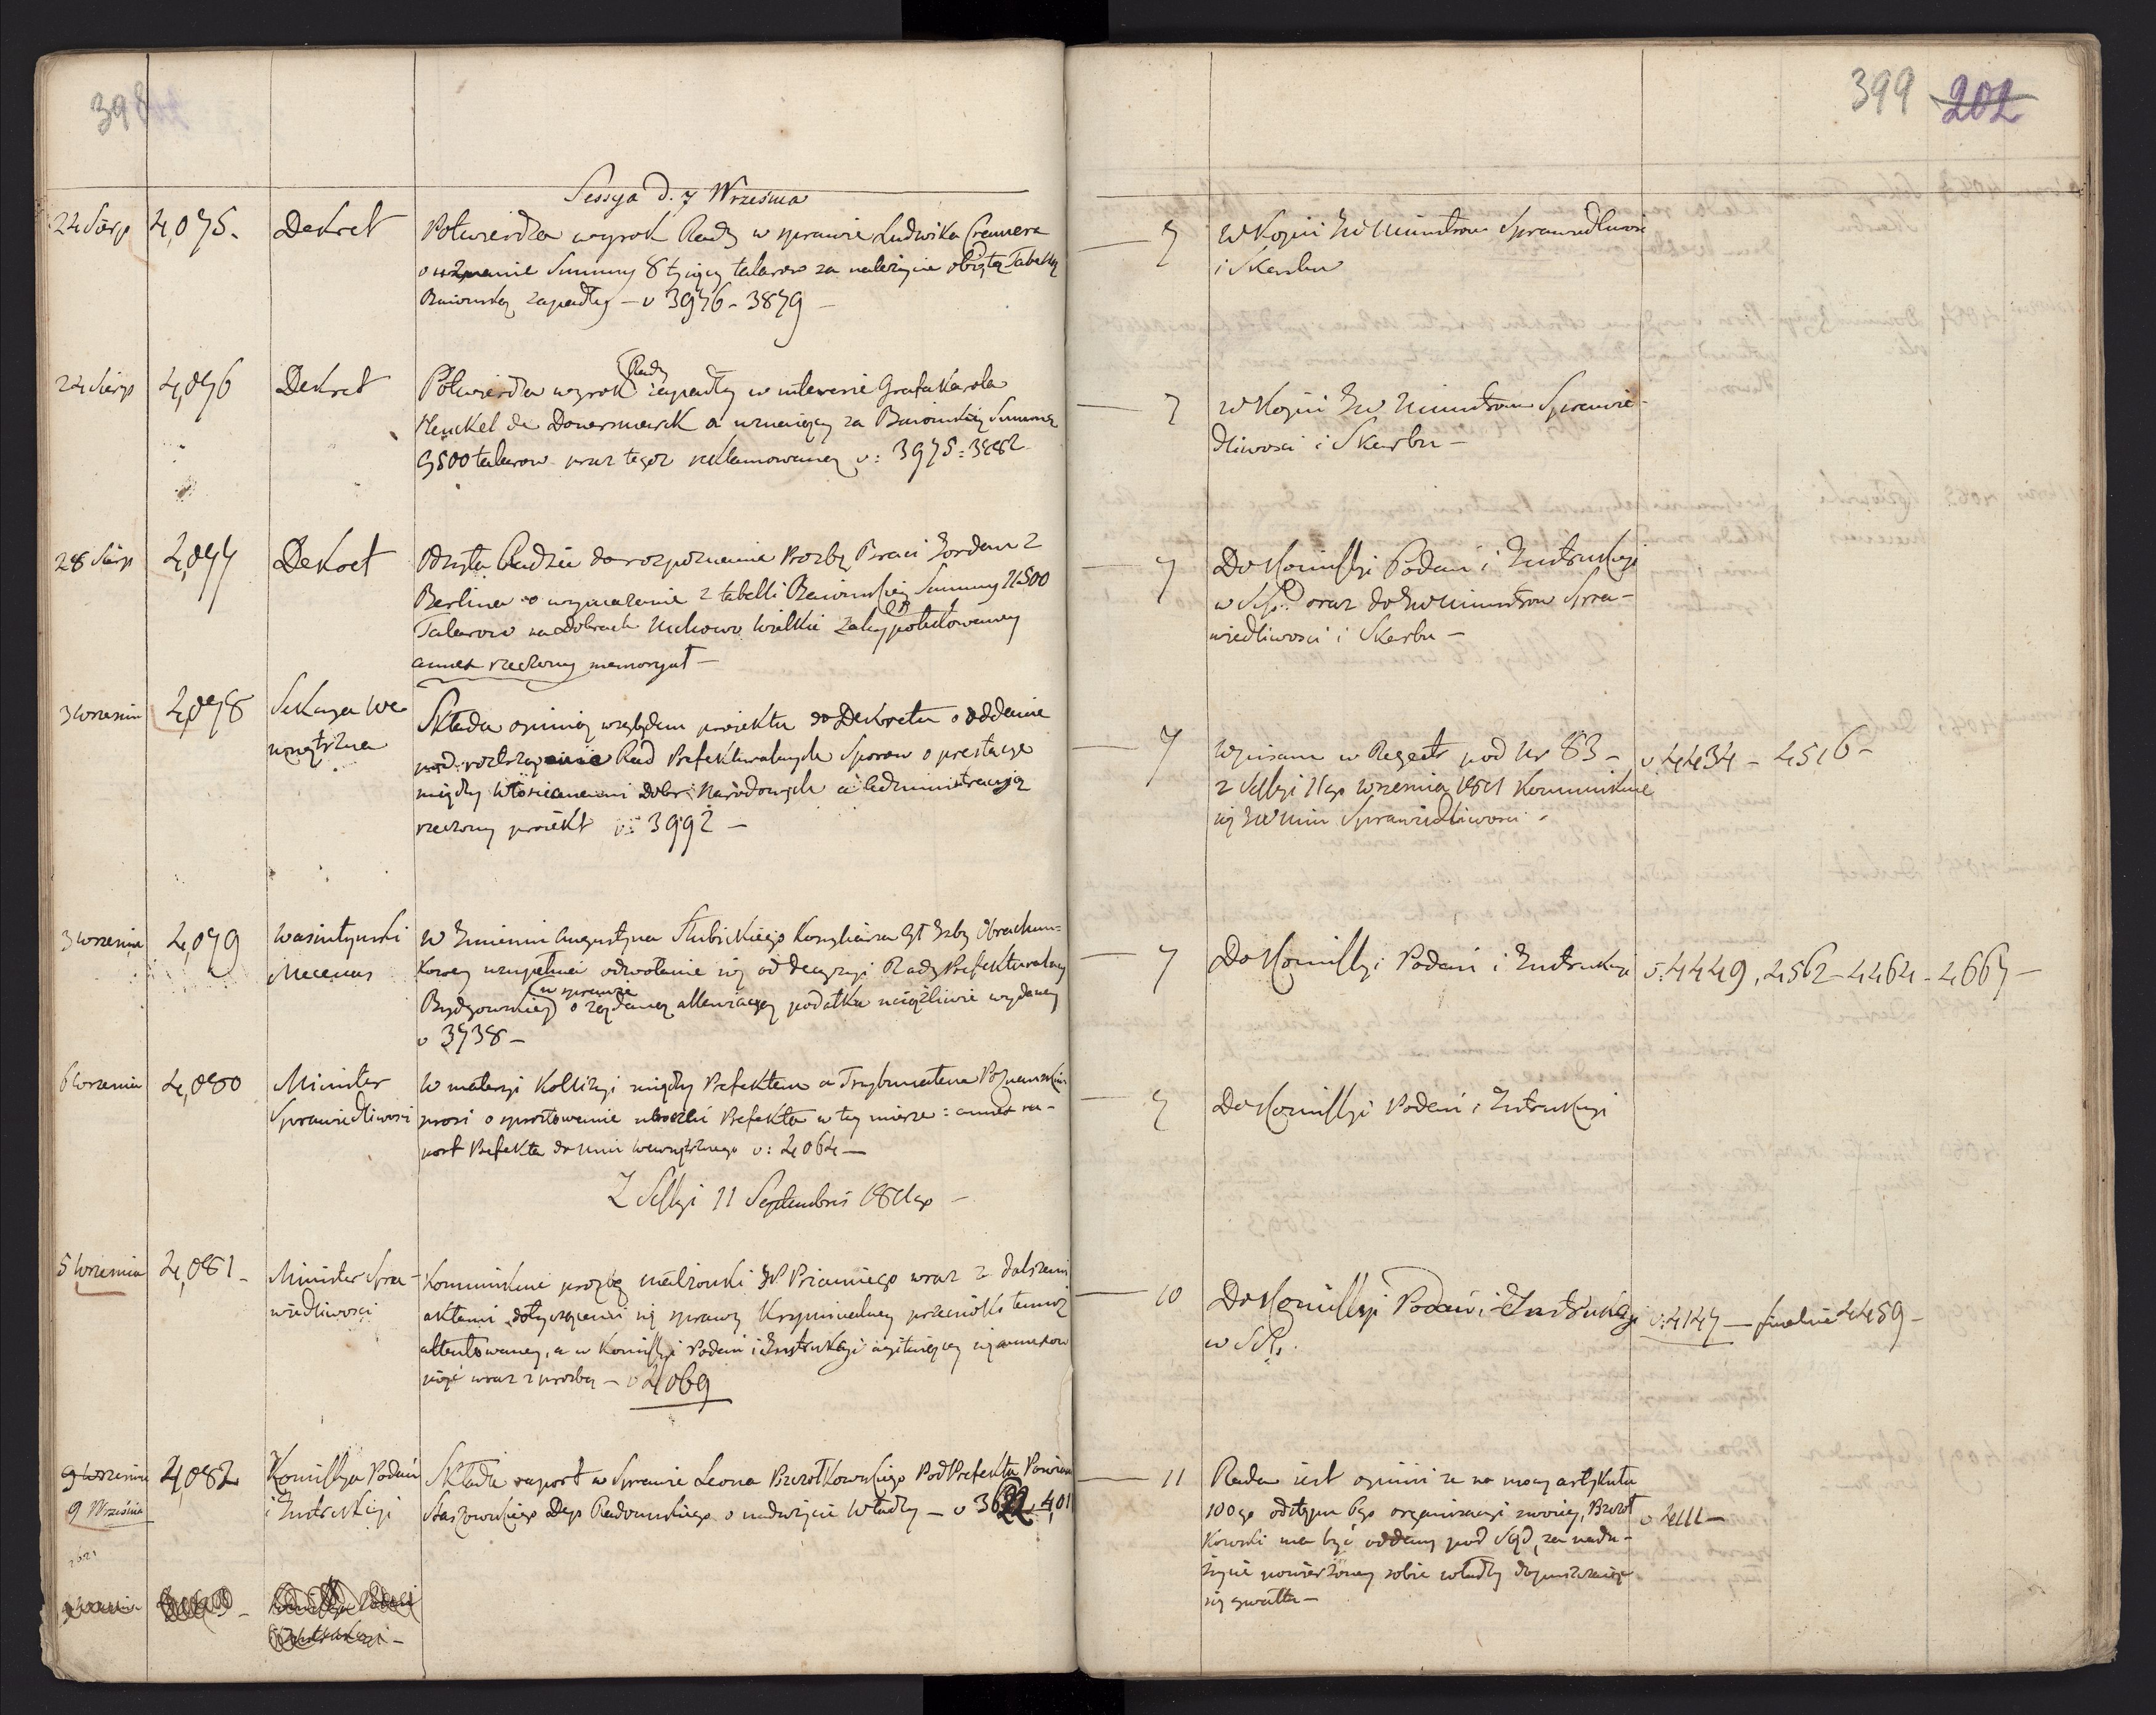 398
399 202
Sessya d. 7 Września
24 Sierp 4,075. Dekret Potwierdza wyrok Rady w sprawie Ludwika Cremera
o uznanie Summy 8 tysięcy talarow za należycie objętą Tabellą
Baiońską zapadły – v 3976 - 3879 –
7 W Kopii JW Ministrom Sprawiedliwości
i Skarbu
24 Sierp 4,076 Dekret Potwierdza wyrok Rady zapadły w interesie Grafa Karola
Henckel de Donersmarck a uznaiący za Baiońską Summę
9500 talarow przez tegoż reklamowaney v: 3975: 3882
7 W Kopii JW Ministrom Sprawie-
dliwosci i Skarbu –
28 Sierp 4,077 Dekret Odsyła Radzie do rozpoznania Prozbę Braci Jordan z
Berlina o wymazanie z tabelli Baiońskiey Summy
Talarow na dobrach Wielkie zahypotekowaney
annex rzeczony memoryał –
7 Do Kommissyi Podań i Instrukcyi
oraz do JW Ministrow Spra-
wiedliwosci i Skarbu –
3 Wrzesnia 4,078 Sekcya We-
wnętrzna
Składa opinią względem proiektu do Dekretu o oddanie
pod rozstrzygnienie Rad Prefekturalnych Sporow o prestacye
między Włościanami Dobr Narodowych a Administracyą
rzeczony proiekt v: 3992 –
7 Wpisana w Regestr pod Nr 83 – v 4434 – 4516 –
z Sessyi 11go Wrzesnia 1811 Kommunikuie
się JW Min Sprawiedliwosci -
3 Wrzesnia 4,079 Wasiutynski
Mecenas
W Imieniu Augustyna Słubickiego Konsyliarza Gł Izby Obrachun-
kowey uzupełnia odwołanie się od decyzyi Rady Prefekturalney
Bydgowskiey w sprawie o podatku uciążliwie wydaney
v 3738 –
7 Do Kommissyi Podań i Instrukcyi v: 4449, 4562 – 4464 – 4667 –
6 Wrzesnia 4,080 Minister
Sprawiedliwosci
W materyi Kollizyi między Prefektem a Trybunałem Poznanskim
prosi o sprostowanie Prefekta w tey mierze: annex ra-
port Prefekta do Min Wewnętrznego v: 4064 —
7 Do Kommissyi Podań i Instrukcyi
Z Sessyi 11 Septembris 1811go –
5 Wrzesnia 4,081 – Minister Spra-
wiedliwosci
Kommunikuie prozbę małżonki wraz z dalszemi
aktami dotyczącemi się sprawy Kryminalney przeciwko temuż
attentowaney, a w Kommissyi Podań i Instrukcyi
wraz z prozbą – v 4069
10 Do Kommissyi Podań i Instrukcyi v: 4147 — finalnie 4459 –
9 Wrzesnia 4,082 Kommissya Podań
9 Września i Instrukcyi
Składa raport w Sprawie Leona Brzozłkowskiego PodPrefekta Powiatu
Staszowskiego Dep Radomskiego o nadużycie Władzy –
11 Rada iest opinii że na mocy artykułu
100go odstępu 6go organizacyi swoiey, Brzozł
kowski ma być oddany pod Sąd, za nadu- v 4111 –
życie powierzoney sobie władzy
się gwałtu –